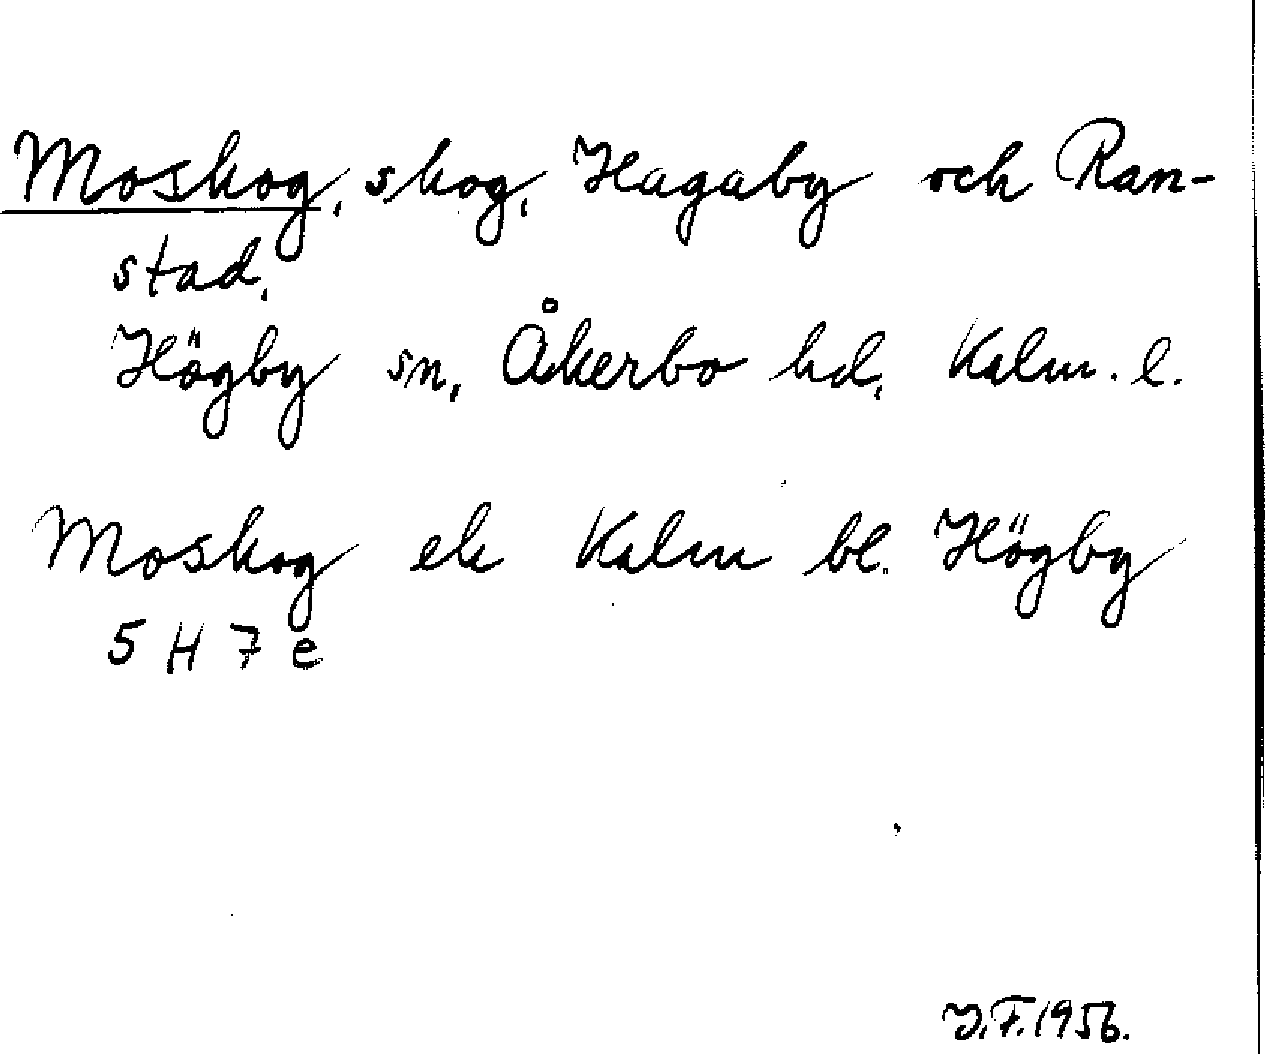 Moskog, skog, Hagaby och Ran-
stad,
Högby sn, Åkerbo hd, Kalm. l.
Moskog ek Kalm bl. Högby
5 H 7 e
Y.F. 1956.